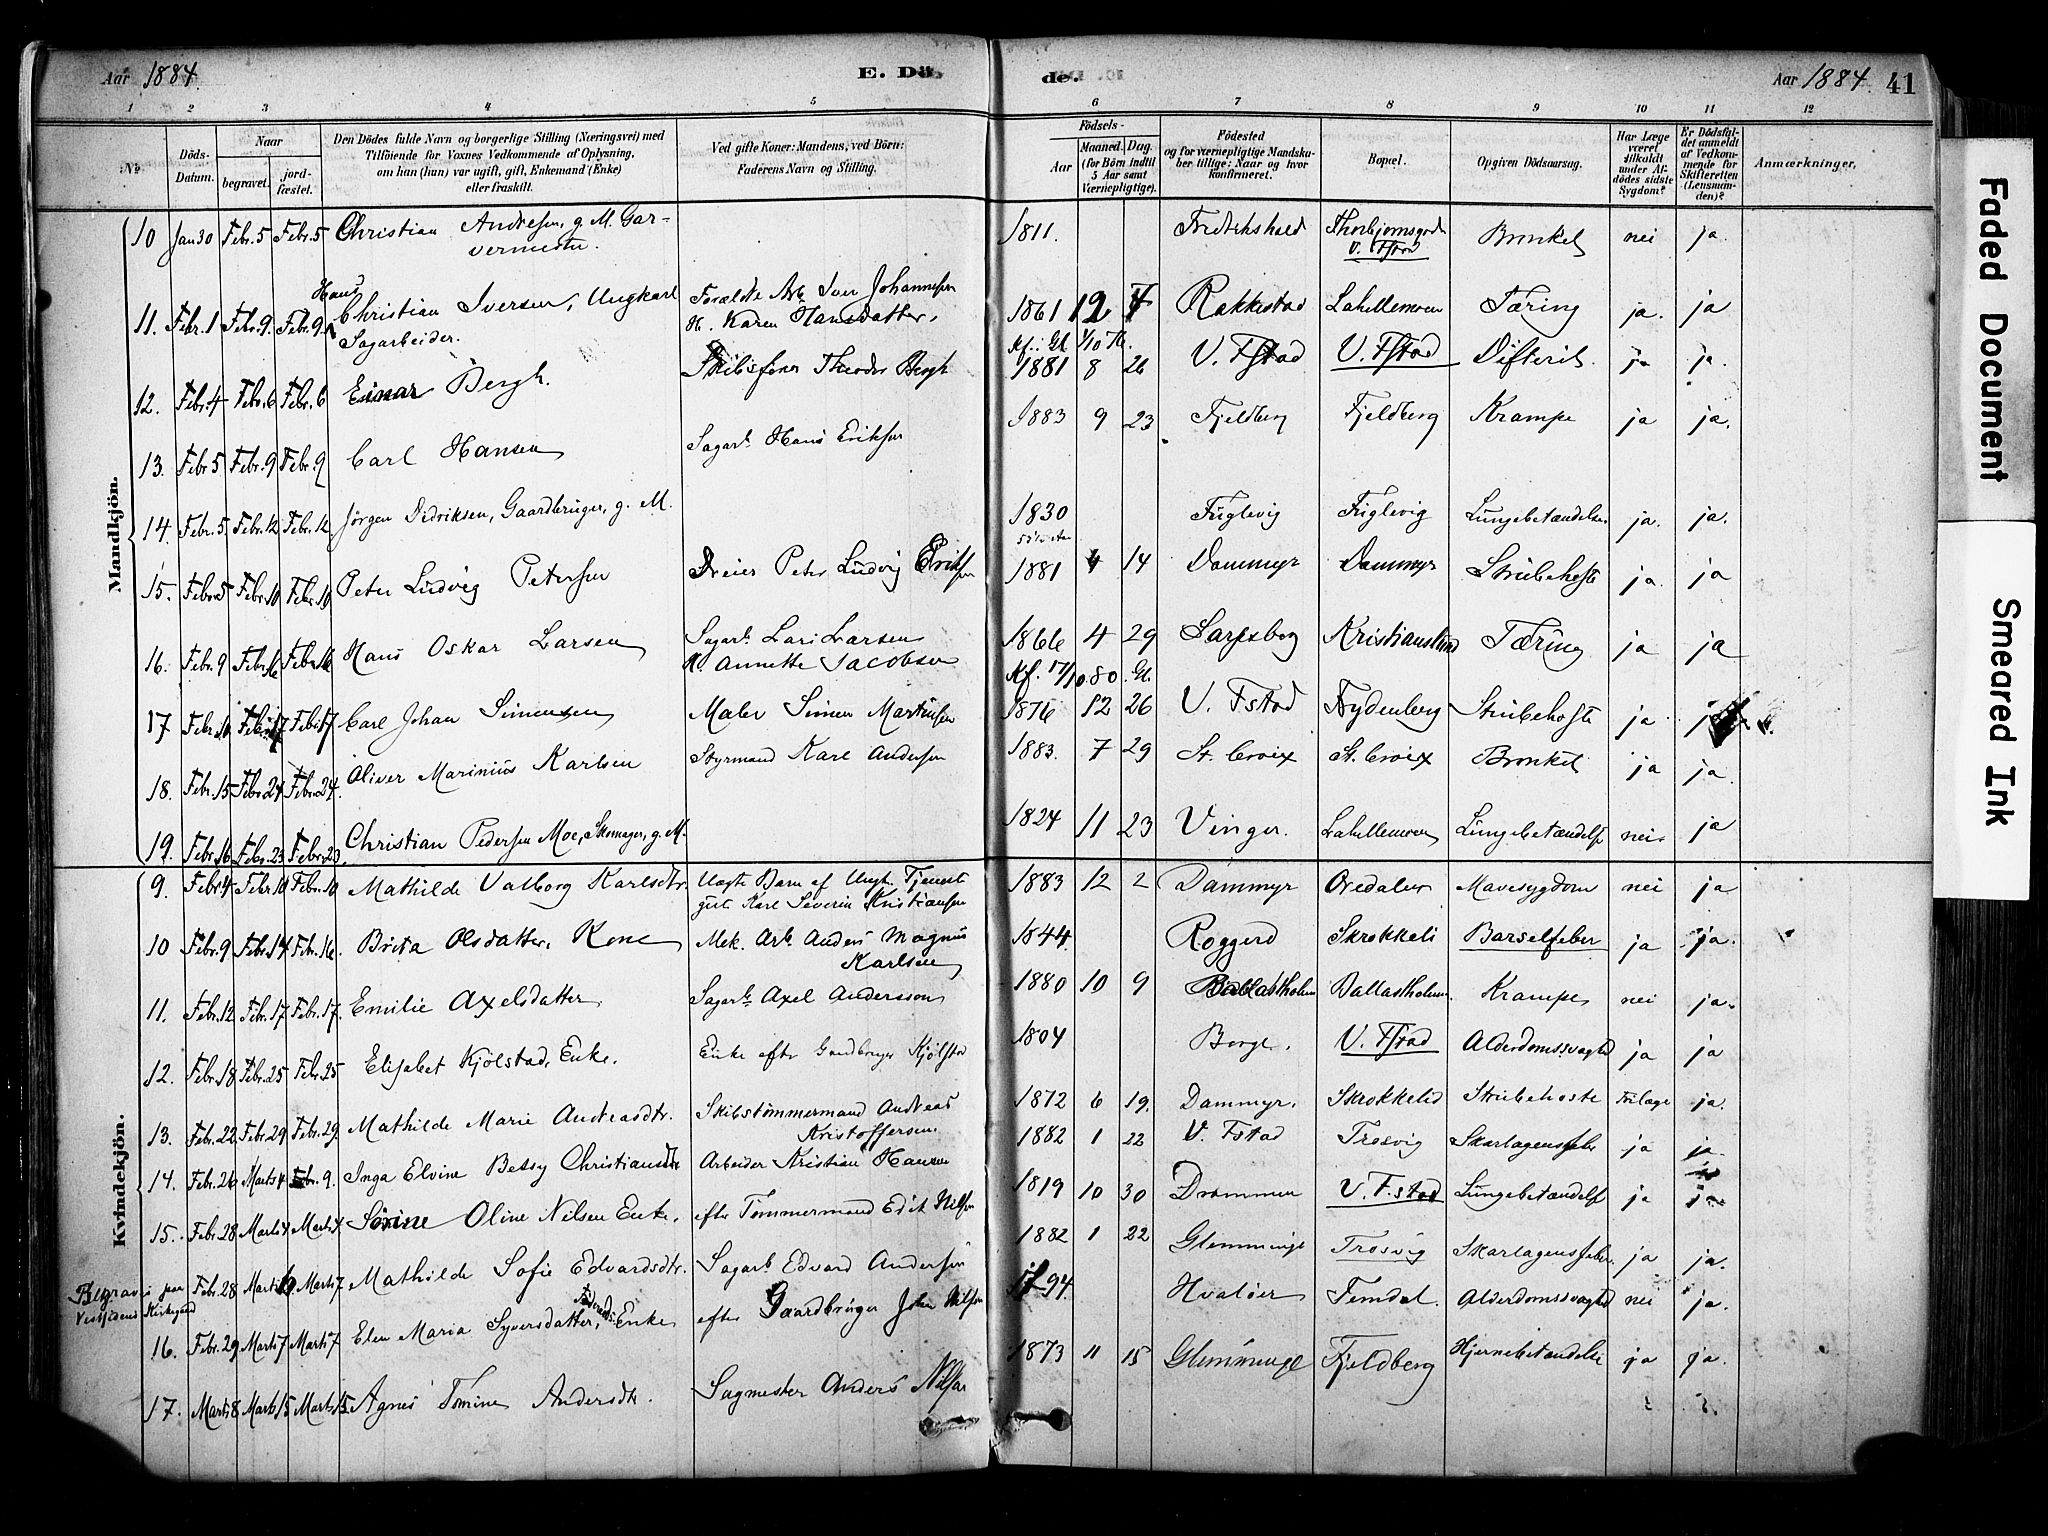 Aar 1884. E. Dö- de. Aar 1884. 41
1 2 3 4 5 6 7 8 9 10 11 12
No. Döds-Datum. Naar begravet. jord-fæstet. Den Dödes fulde Navn og borgerlige Stilling (Næringsvei) med Tilföiende for Voxnes Vedkommende af Oplysning, om han (hun) var ugift, gift, Enkemand (Enke) eller fraskilt. Ved gifte Koner: Mandens, ved Börn: Faderens Navn og Stilling. Födsels- Aar Maaned. Dag. (for Börn indtil 5 Aar samt Værnepligtige). Födested og for værnepligtige Mandska-ber tillige: Naar og hvor konfirmeret. Bopæl. Opgiven Dödsaarsag. Har Læge været tilkaldt under Af-dödes sidste Sygdom? Er Dödsfal-det anmeldt af Vedkom-mende for Skifteretten (Lensman-den)? Anmærkninger.
Mandkjön.
10 Jan 30 Febr. 5 Febr. 5 Christian Andresen, g. M. Gar-
vermester. 1811. Fredrikshald Thorbjørnsgod V. Fstad Bronkit nei ja.
11. Febr. 1 Febr. 9. Febr. 9. Hans Christian Iversen, Ungkarl
Sagarbeider. Forældre Arb Iver Johannesen
H. Karen Hansdatter. 1861 12 4 Rakkestad Lahellemoen Tæring ja. ja
Kf. i Gl 1/10 76.
12. Febr. 4 Febr. 6 Febr. 6 Einar Bergh. Skibsfører Theodor Bergh 1881 8 26 V. Fstad V. Fstad Difterit ja ja.
13. Febr. 5 Febr. 9 Febr. 9 Carl Hansen Sagarb. Hans Eriksen 1883 9 23 Fjeldberg Fjeldberg Krampe ja ja.
14. Febr. 5. Febr. 12 Febr. 12. Jørgen Didriksen, Gaardbruger, g. M. 1830 Fuglevig Fuglevig Lungebetændelse. ja. ja.
15. Febr. 5 Febr. 10 Febr. 10 Peter Ludvig Petersen Dreier Peter Ludvig Eriksen 1881 4 14 Dammyr Dammyr Strubehoste ja. ja
16. Febr. 9 Febr. 16 Febr. 16 Hans Oskar Larsen Sagarb. Lars Larsen
H. Annette Jacobsen 1866 4 29 Sarpsborg Kristianslund Tæring ja ja
Kf. 17/10 80. Gl.
17 Febr. 10 Febr. 17 Febr. 17 Carl Johan Simensen Maler Simen Martinsen 1876 12 26 V. Fstad Nydenberg Strubehoste ja
18. Febr. 15 Febr. 24 Febr. 24. Oliver Marinius Karlsen Styrmand Karl Andersen 1883. 7 29 St. Croix St. Croix Bronkit ja ja.
19. Febr. 16 Febr. 23 Febr. 23. Christian Pedersen Moe, Skomager, g. M. 1824 11 23 Vinger. Lahellemoen Lungebetændelse nei. ja
Kvindekjön.
9. Febr. 4 Febr. 10 Febr. 10 Mathilde Valborg Karlsdtr. Uægte Barn af Ungk. Tjeneste
gut Karl Severin Kristiansen 1883 12 2 Dammyr Oredalen Mavesygdom nei ja
10 Febr. 9 Febr. 14 Febr. 16. Brita Olsdatter, Kone Mek. Arb. Anders Magnus
Karlsen 1844. Roggerd Skrokkeli Barselfeber ja ja.
11. Febr. 12 Febr. 17 Febr. 17. Emilie Axelsdatter Sagarb. Axel Andersson 1880 10 9 Ballastholmen Ballastholmen. Krampe nei ja.
12. Febr. 18 Febr. 25 Febr. 25 Elisabet Kjølstad, Enke. Enke efter Gaardbruger Kjølstad 1804 Borge. V. Fstad Alderdomssvaghed ja ja
13. Febr. 22 Febr. 29 Febr. 29. Mathilde Marie Andreasdtr. Skibstømmermand Andreas
Kristoffersen 1872 6 19. Dammyr. Skrokkelid Strubehoste ja.
14. Febr. 26 Marts 4 Febr. 9. Inga Elvine Betsy Christiansdtr Arbeider Kristian Hansen 1882 1 22 V. Fstad Trosvig Skarlagensfeber ja ja.
15. Febr. 28 Marts 4 Marts 4. Sørine Oline Nilsen Enke. efter Tømmermand Edit Nilsen 1819 10 30 Drammen V. Fstad Lungebetændelse ja ja
Febr. 28 Marts Marts 7 Mathilde Sofie Edvardsdtr. Sagarb Edvard Andersen 1882 1 22 Glemminge Trosvig Skarlagensfeber. ja ja.
Begraves paa
Vestsidens Kirkegaard
16. Febr. 29 Marts 7 Marts 7 Elen Maria Syversdatter, Enke efter Gaardbruger John Nilsen 1794. Hvaløer Femdal. Alderdomssvaghed nei ja.
17. Marts 8 Marts 15 Marts 15 Agnes Tomine Andersdtr. Sagmester Anders Nilsen 1873 11 15 Glemminge Fjeldberg Hjernebetændelse ja ja.
Faded Document
Smeared Ink